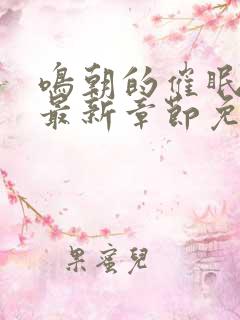 鳴朝的催眠
最新章節免
果蜜兒